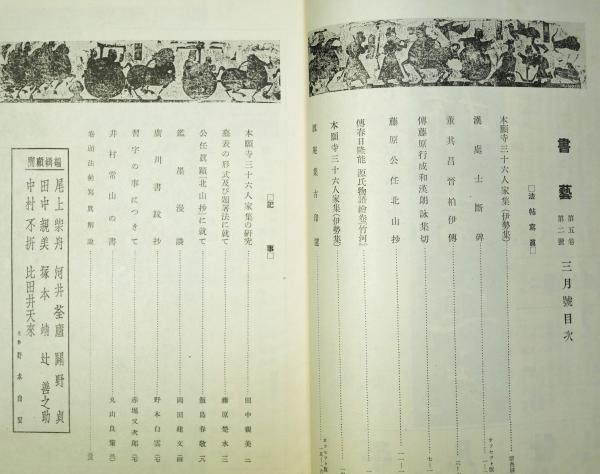 書藝 第五卷 第二號 三月號目次
□法帖寫眞□
本願寺三十六人家集(伊勢集)
漢處士斷碑 オフセット版
董其昌晉柏伊傳
傳藤原行成和漢朗詠集切
藤原公任北山抄
傳春日隆能 源氏物語繪卷(竹河)
本願寺三十六人家集(伊勢集)
集古印選
□記事□
本願寺三十六人家集の研究 田中親美
墓表の形式及び題署法に就て 藤原楚水
公任眞蹟「北山抄」に就て 飯島春敬
鑑墨漫談 岡田建文
廣川書跋抄 野本白雲
習字の事につきて 赤堀又次郎
井村常山の書 丸山良策
卷頭法帖寫眞解說
編輯顧問
尾上柴舟 河井荃廬 關野貞
田中親美 塚本靖 辻善之助
中村不折 比田井天來
野本白雲